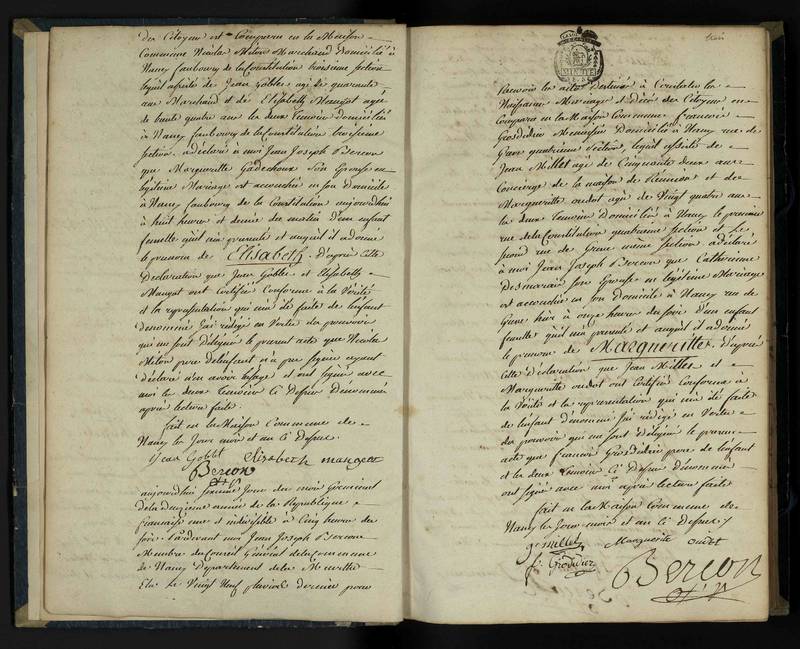 des Citoyens est Comparu en la Maison
Commune Nicolas Milon Marchand domicilié à
Nancy faubourg de la Constitution troisieme section
lequel assisté de Jean Goblet agé de quarante
ans Marchand et de Elisabeth Mangeot agée
de trente quatre ans les deux temoins domiciliés
à Nancy faubourg de la Constitution troisieme
section. a déclaré à moi Jean Joseph Bercon
que Margueritte Gadechoux Son Epouse en
légitime Mariage est accouchée en son domicile
à Nancy faubourg de la Constitution aujourdhui
à huit heures et demie du matin d'un enfant
femelle quil m'a presenté et auquel il a donné
le prenom de Elisabeth. d'après cette
Declaration que Jean Goblet et Elisabeth
Mangeot ont Certifié Conforme à la Vérité
et la représentation qui m'a été faite de l'enfant
denommé J'ai rédigé en Vertu des pouvoirs
qui me sont délégués le present acte que Nicolas
Milon pere de l'enfant n'a pu signer ayant
déclaré n'en avoir l'usage et ont signé avec
moi les deux temoins Ci Dessus Dénommés
après lecture faite.
fait en la Maison Commune de
Nancy les Jour mois et an Ci Dessus.
Jean Goblet Elisabeth mangeot
Bercon
aujourdhui premier Jour du mois Germinal
de la deuxieme année de la Republique
francaise une et indivisible à Cinq heures du
soir. Pardevant moi Jean Joseph Bercon
Membre du Conseil Général de la Commune
de Nancy Departement de la Meurthe
Elu le Vingt Neuf pluviose dernier pour
trois
MINUTE
Recevoir les actes destinés à Constater les
Naissances Mariages et Décès des Citoyens est
Comparu en la Maison Commune francois
Grosdidier Menuisier Domicilié à Nancy rue de
Grève quatrieme Section, lequel assisté de
Jean Millet agé de Cinquante deux ans
Concierge de la maison de Réunion et de
Margueritte oudot agée de Vingt quatre ans
les deux temoins Domiciliés à Nancy le premier
rue de la Constitution quatrieme section et le
second rue de Grève même section, a déclaré
à moi Jean Joseph Bercon que Catherinne
Desmarais Son Epouse en legitime Mariage
est accouchée en son Domicile à Nancy rue de
Grève hier à onze heures du soir d'un enfant
femelle quil m'a presenté et auquel il a donné
le prenom de Margueritte, d'après
cette déclaration que Jean Millet et
Margueritte oudot ont Certifié Conforme à
la Vérité et la représentation qui m'a été faite
de l'enfant dénommé J'ai rédigé en Vertu
des pouvoirs qui me sont délégués le present
acte que francois Grosdidier pere de l'enfant
et les deux temoins Ci Dessus dénommés
ont signé avec moi après lecture faite
fait en la Maison Commune de
Nancy les Jour mois et an Ci Dessus.
J Millet Marguerite oudot
f. Grosdidier
Bercon